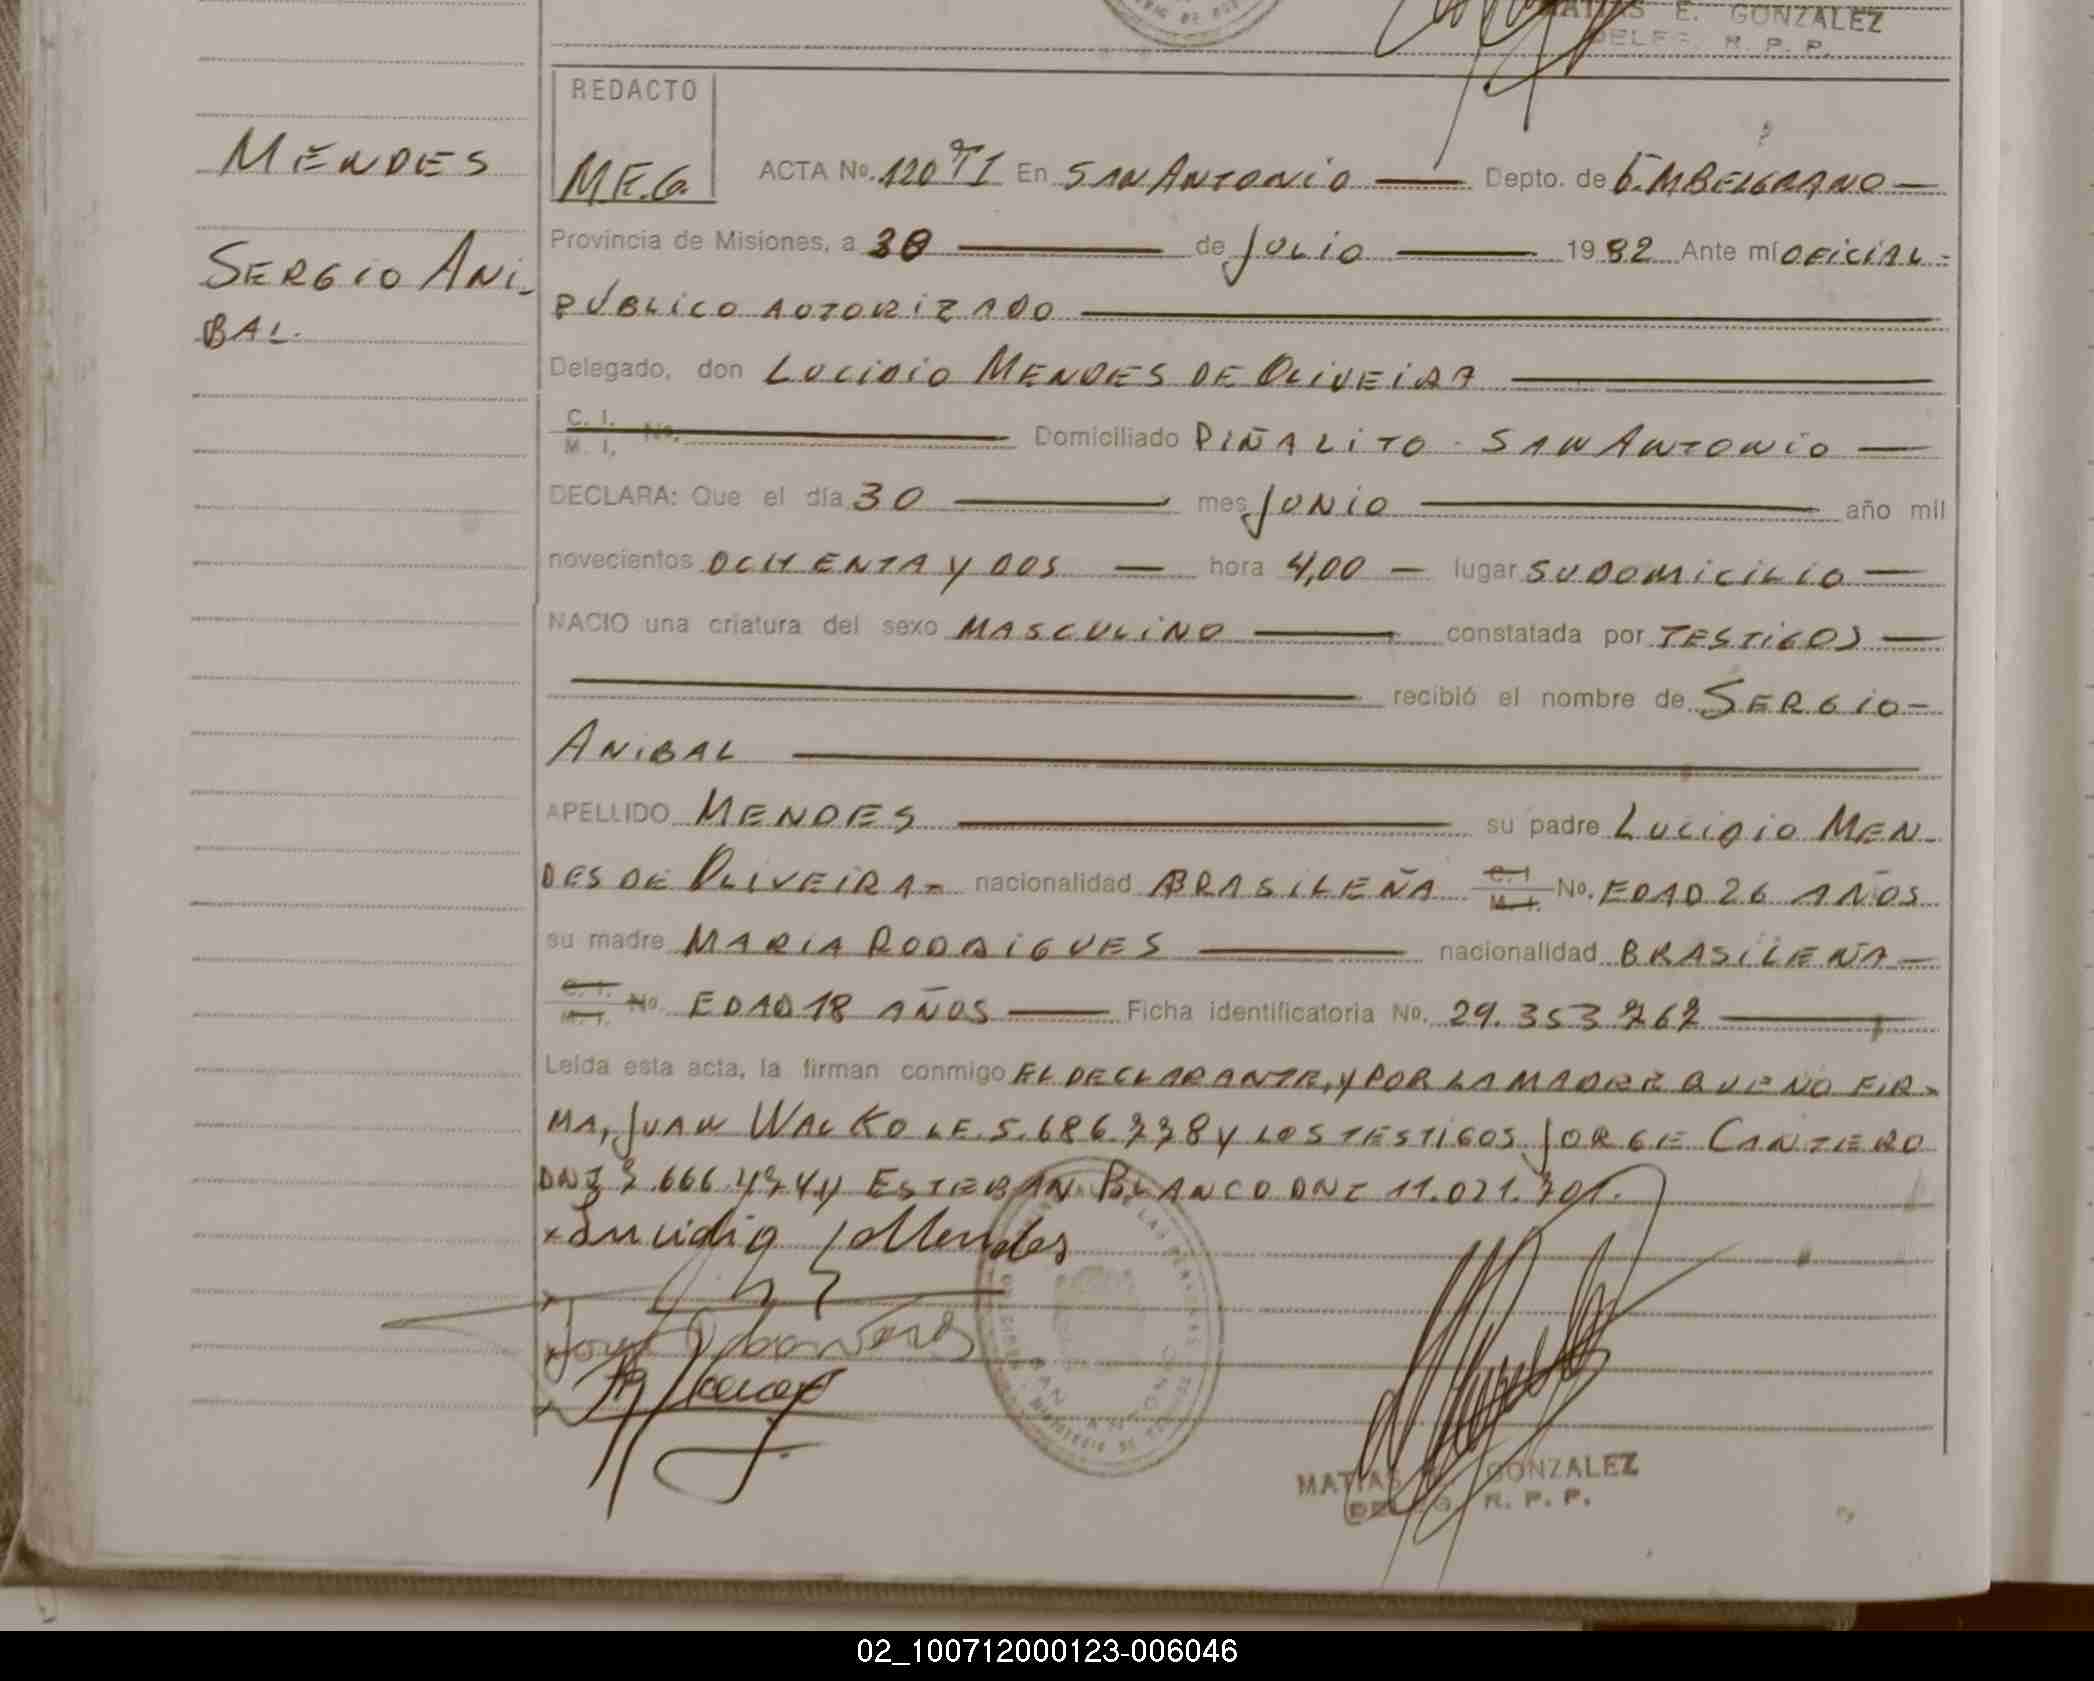 MATIAS E. GONZALEZ
DELEG. R. P. P.
REDACTO
M.E.G.
MENDES
SERGIO ANI-
BAL.
ACTA No. 120 TI En SAN ANTONIO Depto. de G.M BELGRANO
Provincia de Misiones, a 30 de JULIO 1982 Ante mí OFICIAL
PUBLICO AUTORIZADO
Delegado, don LUCIDIO MENDES DE OLIVEIRA
C. I. M. I. No. Domiciliado PIÑALITO - SAN ANTONIO
DECLARA: Que el día 30 mes JUNIO año mil
novecientos OCHENTA Y DOS hora 4,00 lugar SU DOMICILIO
NACIO una criatura del sexo MASCULINO constatada por TESTIGOS
recibió el nombre de SERGIO
ANIBAL
APELLIDO MENDES su padre LUCIDIO MEN-
DES DE OLIVEIRA nacionalidad BRASILEÑA C. I. M. I. No. EDAD 26 AÑOS
su madre MARIA RODRIGUES nacionalidad BRASILEÑA
C. I. M. I. No. EDAD 18 AÑOS Ficha identificatoria No. 29.353.762
Leída esta acta, la firman conmigo EL DECLARANTE, Y POR LA MADRE QUE NO FIR-
MA, JUAN WALKO LE. 5.686.778 Y LOS TESTIGOS JORGE CANTERO
DNI 7.666.474 Y ESTEBAN BLANCO DNI 11.021.701.
SAN ANTONIO
MATIAS GONZALEZ
DELEG. R. P. P.
02_100712000123-006046